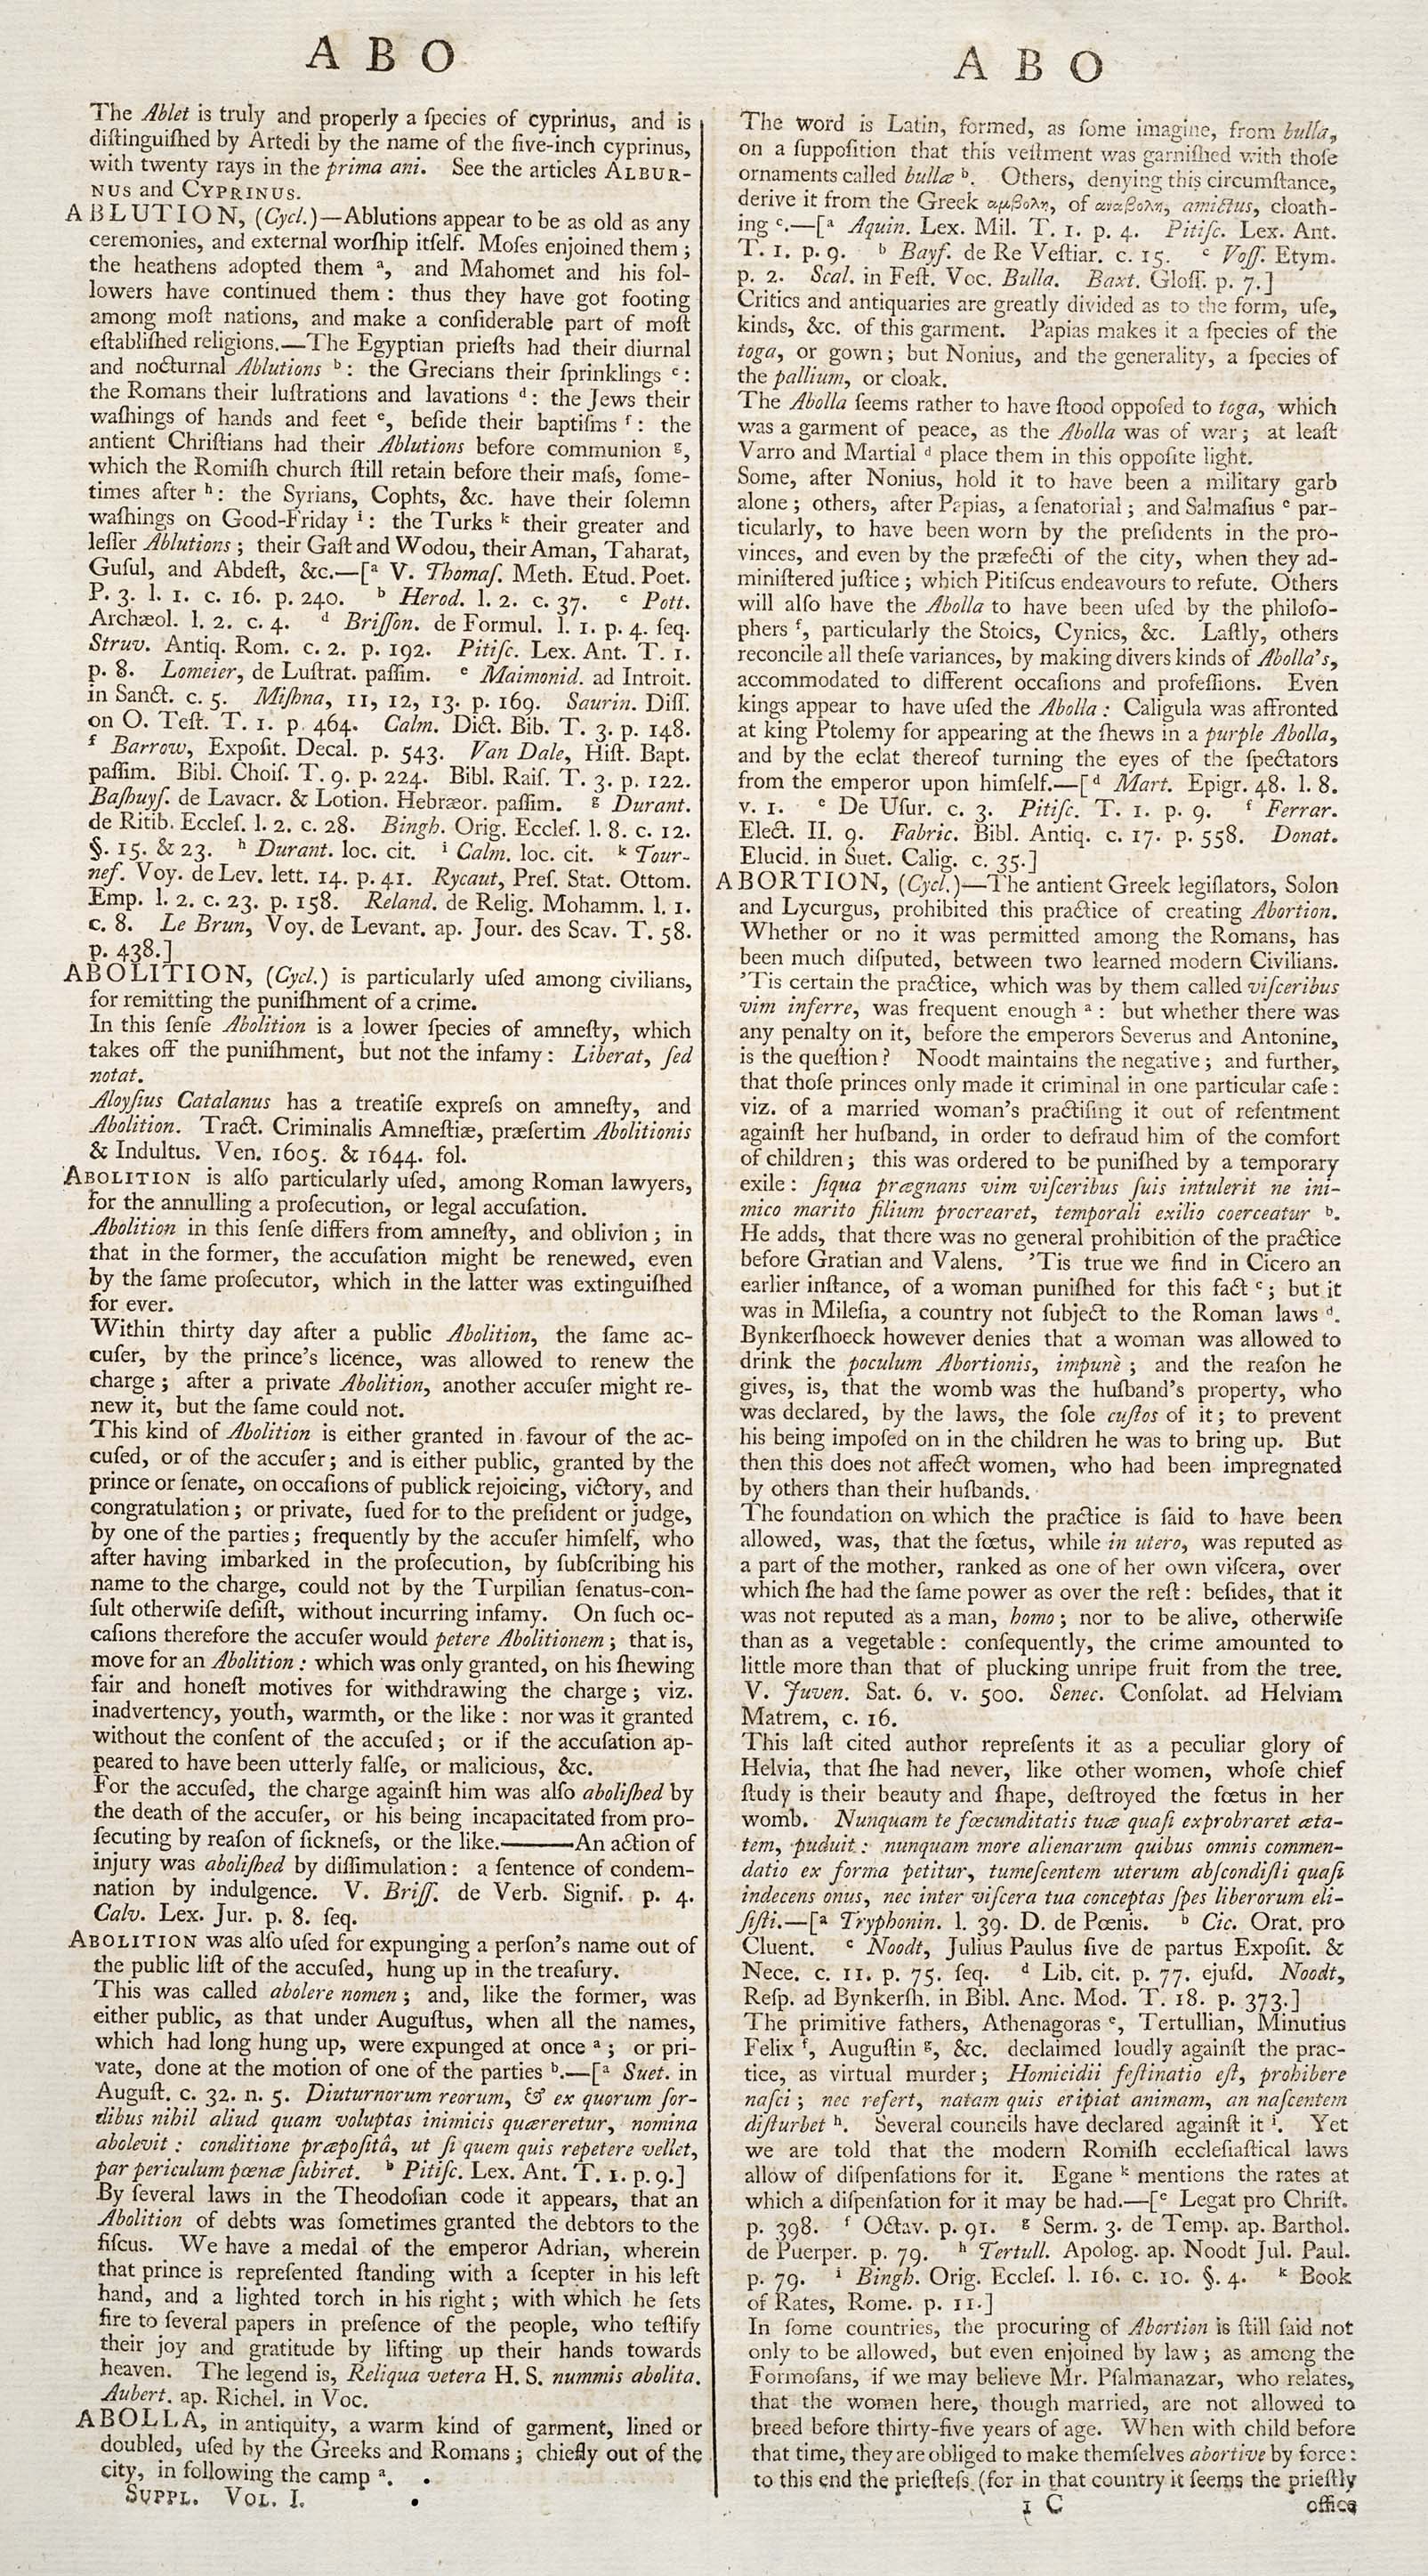 A B O
The Ablet is truly and properly a ſpecies of cyprinus, and is
diſtinguiſhed by Artedi by the name of the five-inch cyprinus,
with twenty rays in the prima ani. See the articles ALBUR-
NUS and CYPRINUS.
ABLUTION, (Cycl.)—Ablutions appear to be as old as any
ceremonies, and external worſhip itſelf. Moſes enjoined them;
the heathens adopted them ᵃ, and Mahomet and his fol-
lowers have continued them: thus they have got footing
among moſt nations, and make a conſiderable part of moſt
eſtabliſhed religions.—The Egyptian prieſts had their diurnal
and nocturnal Ablutions ᵇ: the Grecians their ſprinklings ᶜ:
the Romans their luſtrations and lavations ᵈ: the Jews their
waſhings of hands and feet ᵉ, beſide their baptiſms ᶠ: the
antient Chriſtians had their Ablutions before communion ᵍ,
which the Romiſh church ſtill retain before their maſs, ſome-
times after ʰ: the Syrians, Cophts, &c. have their ſolemn
waſhings on Good-Friday ⁱ: the Turks ᵏ their greater and
leſſer Ablutions; their Gaſt and Wodou, their Aman, Taharat,
Guſul, and Abdeſt, &c.—[ᵃ V. Thomaſ. Meth. Etud. Poet.
P. 3. l. 1. c. 16. p. 240. ᵇ Herod. l. 2. c. 37. ᶜ Pott.
Archæol. l. 2. c. 4. ᵈ Briſſon. de Formul. l. 1. p. 4. ſeq.
Struv. Antiq. Rom. c. 2. p. 192. Pitiſc. Lex. Ant. T. 1.
p. 8. Lomeier, de Luſtrat. paſſim. ᵉ Maimonid. ad Introit.
in Sanct. c. 5. Miſhna, 11, 12, 13. p. 169. Saurin. Diſſ.
on O. Teſt. T. 1. p. 464. Calm. Dict. Bib. T. 3. p. 148.
ᶠ Barrow, Expoſit. Decal. p. 543. Van Dale, Hiſt. Bapt.
paſſim. Bibl. Choiſ. T. 9. p. 224. Bibl. Raiſ. T. 3. p. 122.
Baſhuyſ. de Lavacr. & Lotion. Hebræor. paſſim. ᵍ Durant.
de Ritib. Eccleſ. l. 2. c. 28. Bingh. Orig. Eccleſ. l. 8. c. 12.
§. 15. & 23. ʰ Durant. loc. cit. ⁱ Calm. loc. cit. ᵏ Tour-
nef. Voy. de Lev. lett. 14. p. 41. Rycaut, Preſ. Stat. Ottom.
Emp. l. 2. c. 23. p. 158. Reland. de Relig. Mohamm. l. 1.
c. 8. Le Brun, Voy. de Levant. ap. Jour. des Scav. T. 58.
p. 438.]
ABOLITION, (Cycl.) is particularly uſed among civilians,
for remitting the puniſhment of a crime.
In this ſenſe Abolition is a lower ſpecies of amneſty, which
takes off the puniſhment, but not the infamy: Liberat, ſed
notat.
Aloyſius Catalanus has a treatiſe expreſs on amneſty, and
Abolition. Tract. Criminalis Amneſtiæ, præſertim Abolitionis
& Indultus. Ven. 1605. & 1644. fol.
ABOLITION is alſo particularly uſed, among Roman lawyers,
for the annulling a proſecution, or legal accuſation.
Abolition in this ſenſe differs from amneſty, and oblivion; in
that in the former, the accuſation might be renewed, even
by the ſame proſecutor, which in the latter was extinguiſhed
for ever.
Within thirty day after a public Abolition, the ſame ac-
cuſer, by the prince's licence, was allowed to renew the
charge; after a private Abolition, another accuſer might re-
new it, but the ſame could not.
This kind of Abolition is either granted in favour of the ac-
cuſed, or of the accuſer; and is either public, granted by the
prince or ſenate, on occaſions of publick rejoicing, victory, and
congratulation; or private, ſued for to the preſident or judge,
by one of the parties; frequently by the accuſer himſelf, who
after having imbarked in the proſecution, by ſubſcribing his
name to the charge, could not by the Turpilian ſenatus-con-
ſult otherwiſe deſiſt, without incurring infamy. On ſuch oc-
caſions therefore the accuſer would petere Abolitionem; that is,
move for an Abolition: which was only granted, on his ſhewing
fair and honeſt motives for withdrawing the charge; viz.
inadvertency, youth, warmth, or the like: nor was it granted
without the conſent of the accuſed; or if the accuſation ap-
peared to have been utterly falſe, or malicious, &c.
For the accuſed, the charge againſt him was alſo aboliſhed by
the death of the accuſer, or his being incapacitated from pro-
ſecuting by reaſon of ſickneſs, or the like.———An action of
injury was aboliſhed by diſſimulation: a ſentence of condem-
nation by indulgence. V. Briſſ. de Verb. Signif. p. 4.
Calv. Lex. Jur. p. 8. ſeq.
ABOLITION was alſo uſed for expunging a perſon's name out of
the public liſt of the accuſed, hung up in the treaſury.
This was called abolere nomen; and, like the former, was
either public, as that under Auguſtus, when all the names,
which had long hung up, were expunged at once ᵃ; or pri-
vate, done at the motion of one of the parties ᵇ.—[ᵃ Suet. in
Auguſt. c. 32. n. 5. Diuturnorum reorum, & ex quorum ſor-
dibus nihil aliud quam voluptas inimicis quæreretur, nomina
abolevit: conditione præpoſitâ, ut ſi quem quis repetere vellet,
par periculum pœnæ ſubiret. ᵇ Pitiſc. Lex. Ant. T. 1. p. 9.]
By ſeveral laws in the Theodoſian code it appears, that an
Abolition of debts was ſometimes granted the debtors to the
fiſcus. We have a medal of the emperor Adrian, wherein
that prince is repreſented ſtanding with a ſcepter in his left
hand, and a lighted torch in his right; with which he ſets
fire to ſeveral papers in preſence of the people, who teſtify
their joy and gratitude by lifting up their hands towards
heaven. The legend is, Reliqua vetera H. S. nummis abolita.
Aubert. ap. Richel. in Voc.
ABOLLA, in antiquity, a warm kind of garment, lined or
doubled, uſed by the Greeks and Romans; chiefly out of the
city, in following the camp ᵃ.
SUPPL. VOL. I.
A B O
The word is Latin, formed, as ſome imagine, from bulla,
on a ſuppoſition that this veſtment was garniſhed with thoſe
ornaments called bullæ ᵇ. Others, denying this circumſtance,
derive it from the Greek αμβολη, of αναβολη, amictus, cloath-
ing ᶜ.—[ᵃ Aquin. Lex. Mil. T. 1. p. 4. Pitiſc. Lex. Ant.
T. 1. p. 9. ᵇ Bayf. de Re Veſtiar. c. 15. ᶜ Voſſ. Etym.
p. 2. Scal. in Feſt. Voc. Bulla. Baxt. Gloſſ. p. 7.]
Critics and antiquaries are greatly divided as to the form, uſe,
kinds, &c. of this garment. Papias makes it a ſpecies of the
toga, or gown; but Nonius, and the generality, a ſpecies of
the pallium, or cloak.
The Abolla ſeems rather to have ſtood oppoſed to toga, which
was a garment of peace, as the Abolla was of war; at leaſt
Varro and Martial ᵈ place them in this oppoſite light.
Some, after Nonius, hold it to have been a military garb
alone; others, after Papias, a ſenatorial; and Salmaſius ᵉ par-
ticularly, to have been worn by the preſidents in the pro-
vinces, and even by the præfecti of the city, when they ad-
miniſtered juſtice; which Pitiſcus endeavours to refute. Others
will alſo have the Abolla to have been uſed by the philoſo-
phers ᶠ, particularly the Stoics, Cynics, &c. Laſtly, others
reconcile all theſe variances, by making divers kinds of Abolla's,
accommodated to different occaſions and profeſſions. Even
kings appear to have uſed the Abolla: Caligula was affronted
at king Ptolemy for appearing at the ſhews in a purple Abolla,
and by the eclat thereof turning the eyes of the ſpectators
from the emperor upon himſelf.—[ᵈ Mart. Epigr. 48. l. 8.
v. 1. ᵉ De Uſur. c. 3. Pitiſc. T. 1. p. 9. ᶠ Ferrar.
Elect. II. 9. Fabric. Bibl. Antiq. c. 17. p. 558. Donat.
Elucid. in Suet. Calig. c. 35.]
ABORTION, (Cycl.)—The antient Greek legiſlators, Solon
and Lycurgus, prohibited this practice of creating Abortion.
Whether or no it was permitted among the Romans, has
been much diſputed, between two learned modern Civilians.
'Tis certain the practice, which was by them called viſceribus
vim inferre, was frequent enough ᵃ: but whether there was
any penalty on it, before the emperors Severus and Antonine,
is the queſtion? Noodt maintains the negative; and further,
that thoſe princes only made it criminal in one particular caſe:
viz. of a married woman's practiſing it out of reſentment
againſt her huſband, in order to defraud him of the comfort
of children; this was ordered to be puniſhed by a temporary
exile: ſiqua prægnans vim viſceribus ſuis intulerit ne ini-
mico marito filium procrearet, temporali exilio coerceatur ᵇ.
He adds, that there was no general prohibition of the practice
before Gratian and Valens. 'Tis true we find in Cicero an
earlier inſtance, of a woman puniſhed for this fact ᶜ; but it
was in Mileſia, a country not ſubject to the Roman laws ᵈ.
Bynkerſhoeck however denies that a woman was allowed to
drink the poculum Abortionis, impunè; and the reaſon he
gives, is, that the womb was the huſband's property, who
was declared, by the laws, the ſole cuſtos of it; to prevent
his being impoſed on in the children he was to bring up. But
then this does not affect women, who had been impregnated
by others than their huſbands.
The foundation on which the practice is ſaid to have been
allowed, was, that the fœtus, while in utero, was reputed as
a part of the mother, ranked as one of her own viſcera, over
which ſhe had the ſame power as over the reſt: beſides, that it
was not reputed as a man, homo; nor to be alive, otherwiſe
than as a vegetable: conſequently, the crime amounted to
little more than that of plucking unripe fruit from the tree.
V. Juven. Sat. 6. v. 500. Senec. Conſolat. ad Helviam
Matrem, c. 16.
This laſt cited author repreſents it as a peculiar glory of
Helvia, that ſhe had never, like other women, whoſe chief
ſtudy is their beauty and ſhape, deſtroyed the fœtus in her
womb. Nunquam te fœcunditatis tuæ quaſi exprobraret æta-
tem, puduit: nunquam more alienarum quibus omnis commen-
datio ex forma petitur, tumeſcentem uterum abſcondiſti quaſi
indecens onus, nec inter viſcera tua conceptas ſpes liberorum eli-
ſiſti.—[ᵃ Tryphonin. l. 39. D. de Pœnis. ᵇ Cic. Orat. pro
Cluent. ᶜ Noodt, Julius Paulus ſive de partus Expoſit. &
Nece. c. 11. p. 75. ſeq. ᵈ Lib. cit. p. 77. ejuſd. Noodt,
Reſp. ad Bynkerſh. in Bibl. Anc. Mod. T. 18. p. 373.]
The primitive fathers, Athenagoras ᵉ, Tertullian, Minutius
Felix ᶠ, Auguſtin ᵍ, &c. declaimed loudly againſt the prac-
tice, as virtual murder; Homicidii feſtinatio eſt, prohibere
naſci; nec refert, natam quis eripiat animam, an naſcentem
diſturbet ʰ. Several councils have declared againſt it ⁱ. Yet
we are told that the modern Romiſh eccleſiaſtical laws
allow of diſpenſations for it. Egane ᵏ mentions the rates at
which a diſpenſation for it may be had.—[ᵉ Legat pro Chriſt.
p. 398. ᶠ Octav. p. 91. ᵍ Serm. 3. de Temp. ap. Barthol.
de Puerper. p. 79. ʰ Tertull. Apolog. ap. Noodt Jul. Paul.
p. 79. ⁱ Bingh. Orig. Eccleſ. l. 16. c. 10. §. 4. ᵏ Book
of Rates, Rome. p. 11.]
In ſome countries, the procuring of Abortion is ſtill ſaid not
only to be allowed, but even enjoined by law; as among the
Formoſans, if we may believe Mr. Pſalmanazar, who relates,
that the women here, though married, are not allowed to
breed before thirty-five years of age. When with child before
that time, they are obliged to make themſelves abortive by force:
to this end the prieſteſs (for in that country it ſeems the prieſtly
1 C
office